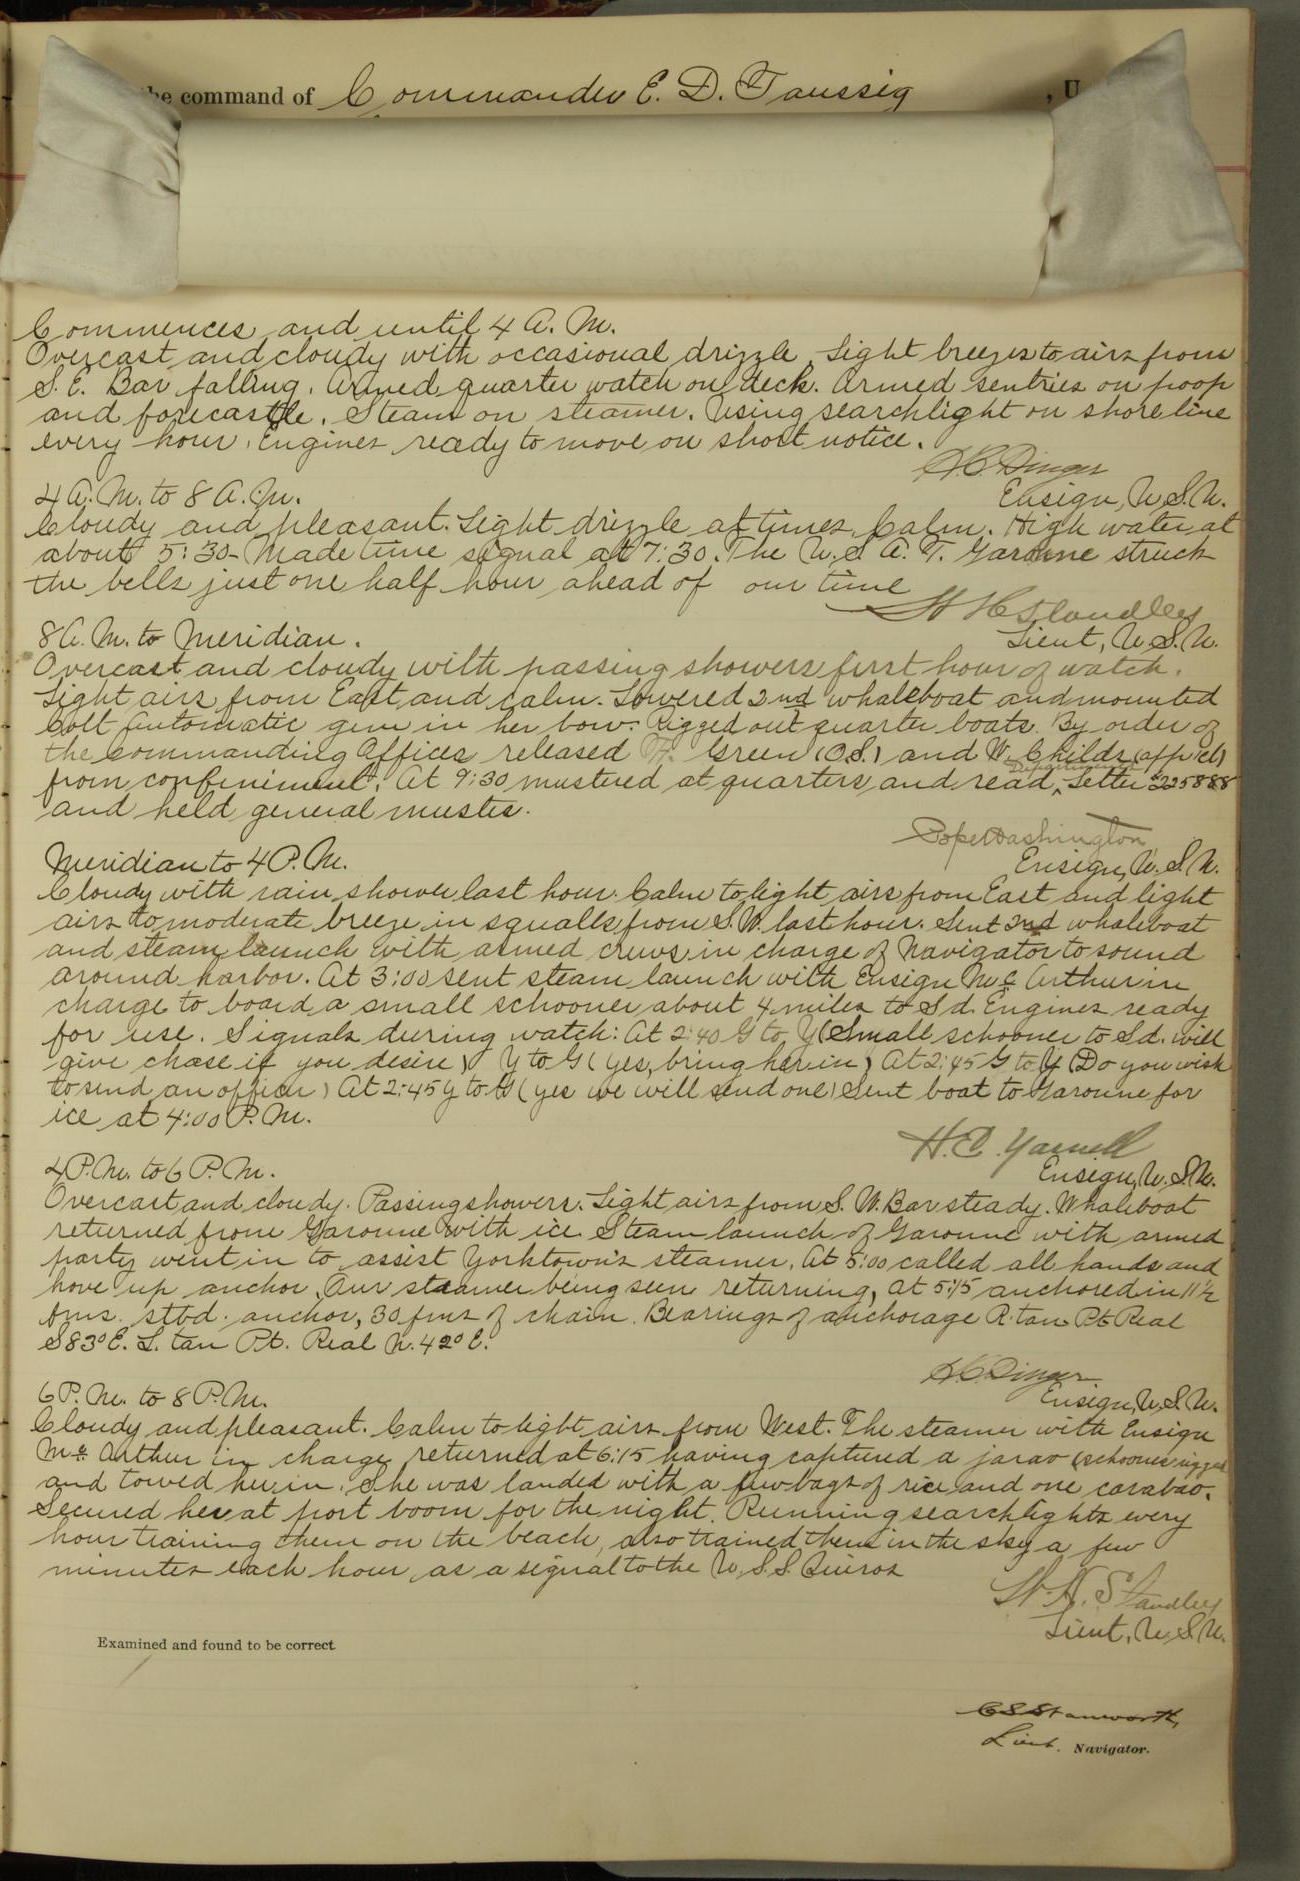 he command of Commander E. D. Taussig, U
Commences and until 4 A. M.
Overcast and cloudy with occasional drizzle. Light breezes to airs from
S. E. Bar falling. Armed quarter watch on deck. Armed sentries on poop
and forecastle. Steam on steamer. Using searchlight on shore line
every hour. Engines ready to move on short notice.
H C Dinger
Ensign, U. S. N.
4 A. M. to 8 A. M.
Cloudy and pleasant. Light drizzle at times. Calm. High water at
about 5:30 - Made time signal at 7:30. The U. S. A. T. Garonne struck
the bells just one half hour ahead of our time
W H Standley
Lieut, U. S. N.
8 A. M. to Meridian.
Overcast and cloudy with passing showers first hour of watch.
Light airs from East and calm. Lowered 2nd whaleboat and mounted
Colt Automatic gun in her bow. Rigged out quarter boats. By order of
the commanding Officer released Green (O.S.) and W. Childs (app 1 cl)
from confinement. At 9:30 mustered at quarters and read Department Letter #225888
and held general muster.
Pope Washington
Ensign, U. S. N.
Meridian to 4 P. M.
Cloudy with rain shower last hour. Calm to light airs from East and light
airs to moderate breeze in squalls from S. W. last hour. Sent 2nd whaleboat
and steam launch with armed crews in charge of Navigator to sound
around harbor. At 3:00 sent steam launch with Ensign Mc Arthur in
charge to board a small schooner about 4 miles to S'd. Engines ready
for use. Signals during watch: At 2:40 G to Y (Small schooner to S'd. will
give chase if you desire) Y to G (Yes, bring her in) At 2:45 G to Y (Do you wish
to send an officer) At 2:45 Y to G (yes we will send one) Sent boat to Garonne for
ice at 4:00 P. M.
H. E. Yarnell
Ensign, U. S. N.
4 P. M. to 6 P. M.
Overcast and cloudy. Passing showers. Light airs from S. W. Bar steady. Whaleboat
returned from Garonne with ice. Steam launch of Garonne with armed
party went in to assist Yorktown's steamer. At 5:00 called all hands and
hove up anchor. Our steamer being seen returning, at 5:15 anchored in 11½
fms. stbd. anchor, 30 fms of chain. Bearings of anchorage R. tan Pt Real
S 83° E. L. tan Pt. Real N. 42° E.
H. C. Dinger
Ensign, U. S. N.
6 P. M. to 8 P. M.
Cloudy and pleasant. Calm to light airs from West. The steamer with Ensign
Mc Arthur in charge returned at 6:15 having captured a parao (schooner rigged
and towed her in. She was landed with a few bags of rice and one carabao.
Secured her at port boom for the night. Running searchlights every
hour training them on the beach, also trained them in the sky a few
minutes each hour as a signal to the U. S. S. Quiros
W. H. Standley
Lieut, U. S. N.
Examined and found to be correct
C S Stanworth,
Lieut. Navigator.